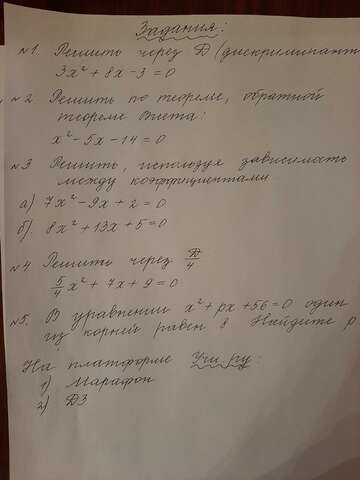 Задания:
№1 Решить через D (дискриминант
3x² + 8x - 3 = 0
№2 Решить по теореме, обратной
теореме Виета:
x² - 5x - 14 = 0
№3 Решить, используя зависимость
между коэффициентами
а) 7x² - 9x + 2 = 0
б). 8x² + 13x + 5 = 0
№4 Решить через D/4
5/4 x² + 7x + 9 = 0
№5. В уравнении x² + px + 56 = 0 один
из корней равен 8 Найдите p
На платформе Учи.ру:
1) Марафон
2) ДЗ